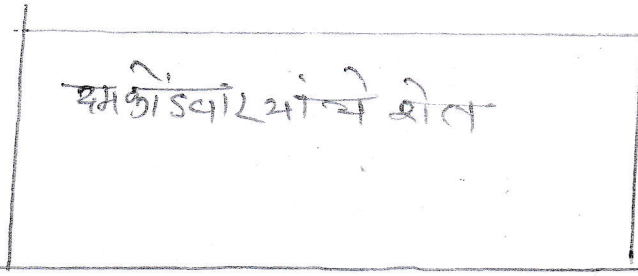 दमकोंडवार यांचे शेत